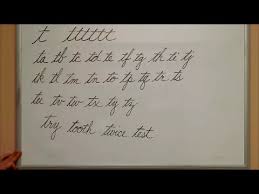 t tttttt
ta tb tc td te tf tg th ti tj
tk tl tm tn to tp tq tr ts
tu tv tw tx ty tz
try tooth twice test